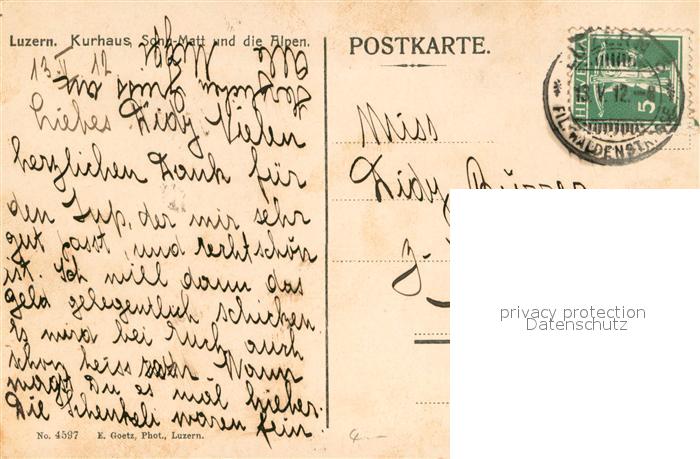 Luzern. Kurhaus Sonn-Matt und die Alpen.
13. V. 12
Liebes Didy Vielen
herzlichen Dank für
den Jup, der mir sehr
gut passt und recht schön
ist. Ich will dann das
geld gelegentlich schicken.
Es wird bei Euch auch
schon heiss Wann
magst Du es mal hieher.
Die Schenkeli waren fein
No. 4597 E. Goetz, Phot., Luzern.
POSTKARTE.
HELVETIA
5
13.V.12.
Miss
Didy
privacy protection
Datenschutz